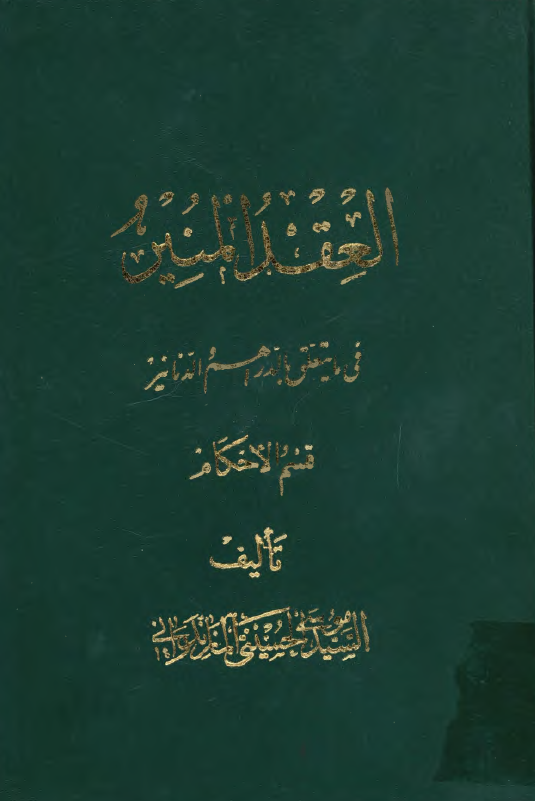 العِقْدُ المُنِيرْ
في ما يتعلق بالدراهم والدنانير
قسم الأحكام
تأليف
السيد موسى الحسيني المازندراني